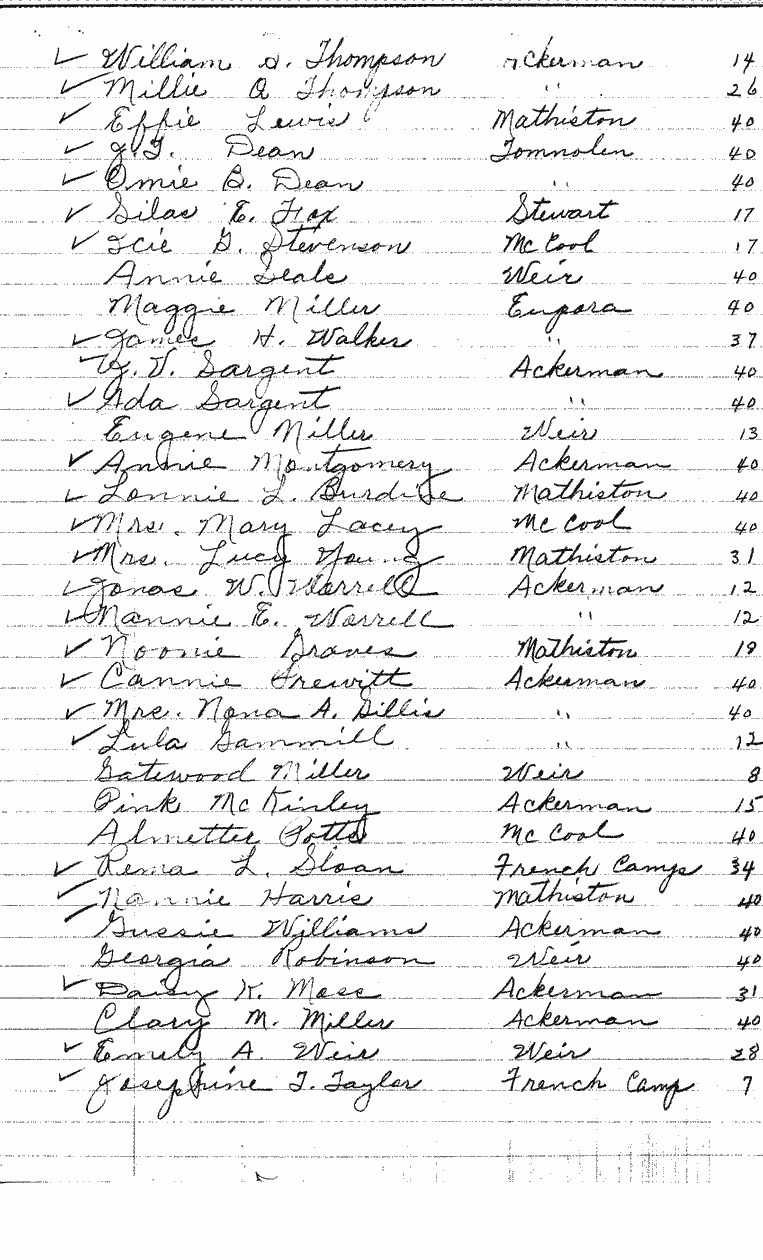 ✓ William S. Thompson Ackerman 14
✓ Millie A Thompson " 26
✓ Effie Lewis Mathiston 40
✓ J. T. Dean Tomnolen 40
✓ Omie B. Dean " 40
✓ Silas E. Fox Stewart 17
✓ Icie G. Stevenson McCool 17
Annie Seals Weir 40
Maggie Miller Eupora 40
✓ James H. Walker " 37
✓ W. V. Sargent Ackerman 40
✓ Ada Sargent " 40
Eugene Miller Weir 13
✓ Annie Montgomery Ackerman 40
✓ Lonnie L. Burdine Mathiston 40
✓ Mrs. Mary Lacey McCool 40
✓ Mrs. Lucy Young Mathiston 31
✓ Jonas W. Worrell Ackerman 12
✓ Nannie E. Worrell " 12
✓ Noonie Graves Mathiston 19
✓ Cannie Prewitt Ackerman 40
✓ Mrs. Nona A. Gillis " 40
✓ Lula Gammill " 12
Gatewood Miller Weir 8
Pink McKinley Ackerman 15
Almetter Potts McCool 40
✓ Rema L. Sloan French Camps 34
✓ Nannie Harris Mathiston 40
✓ Gussie Williams Ackerman 40
Georgia Robinson Weir 40
✓ Daisy K. Moss Ackerman 31
Clary M. Miller Ackerman 40
✓ Emely A. Weir Weir 28
✓ Josephine T. Taylor French Camp 7